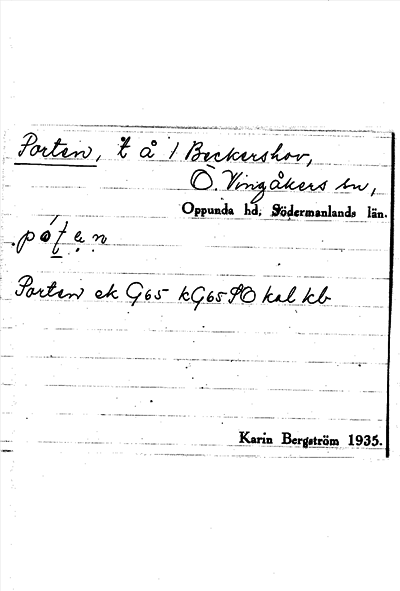 Porten, t å / Beckershov,
Ö. Vingåkers sn,
Oppunda hd, Södermanlands län.
Porten ek G65 kG65 SO kal kb
Karin Bergström 1935.